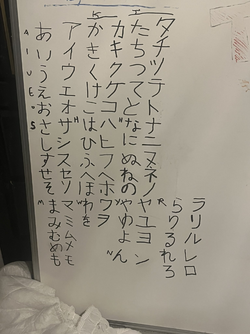 A I U E O S M
あいうえお さしすせそ まみむめも
アイウエオ サシスセソ マミムメモ
K
かきくけこ はひふへほ わを
カキクケコ ハヒフヘホ ワヲ
たちつてと なにぬねの やゆよ ん
タチツテト ナニヌネノ ヤユヨ ン
R
らりるれろ
ラリルレロ